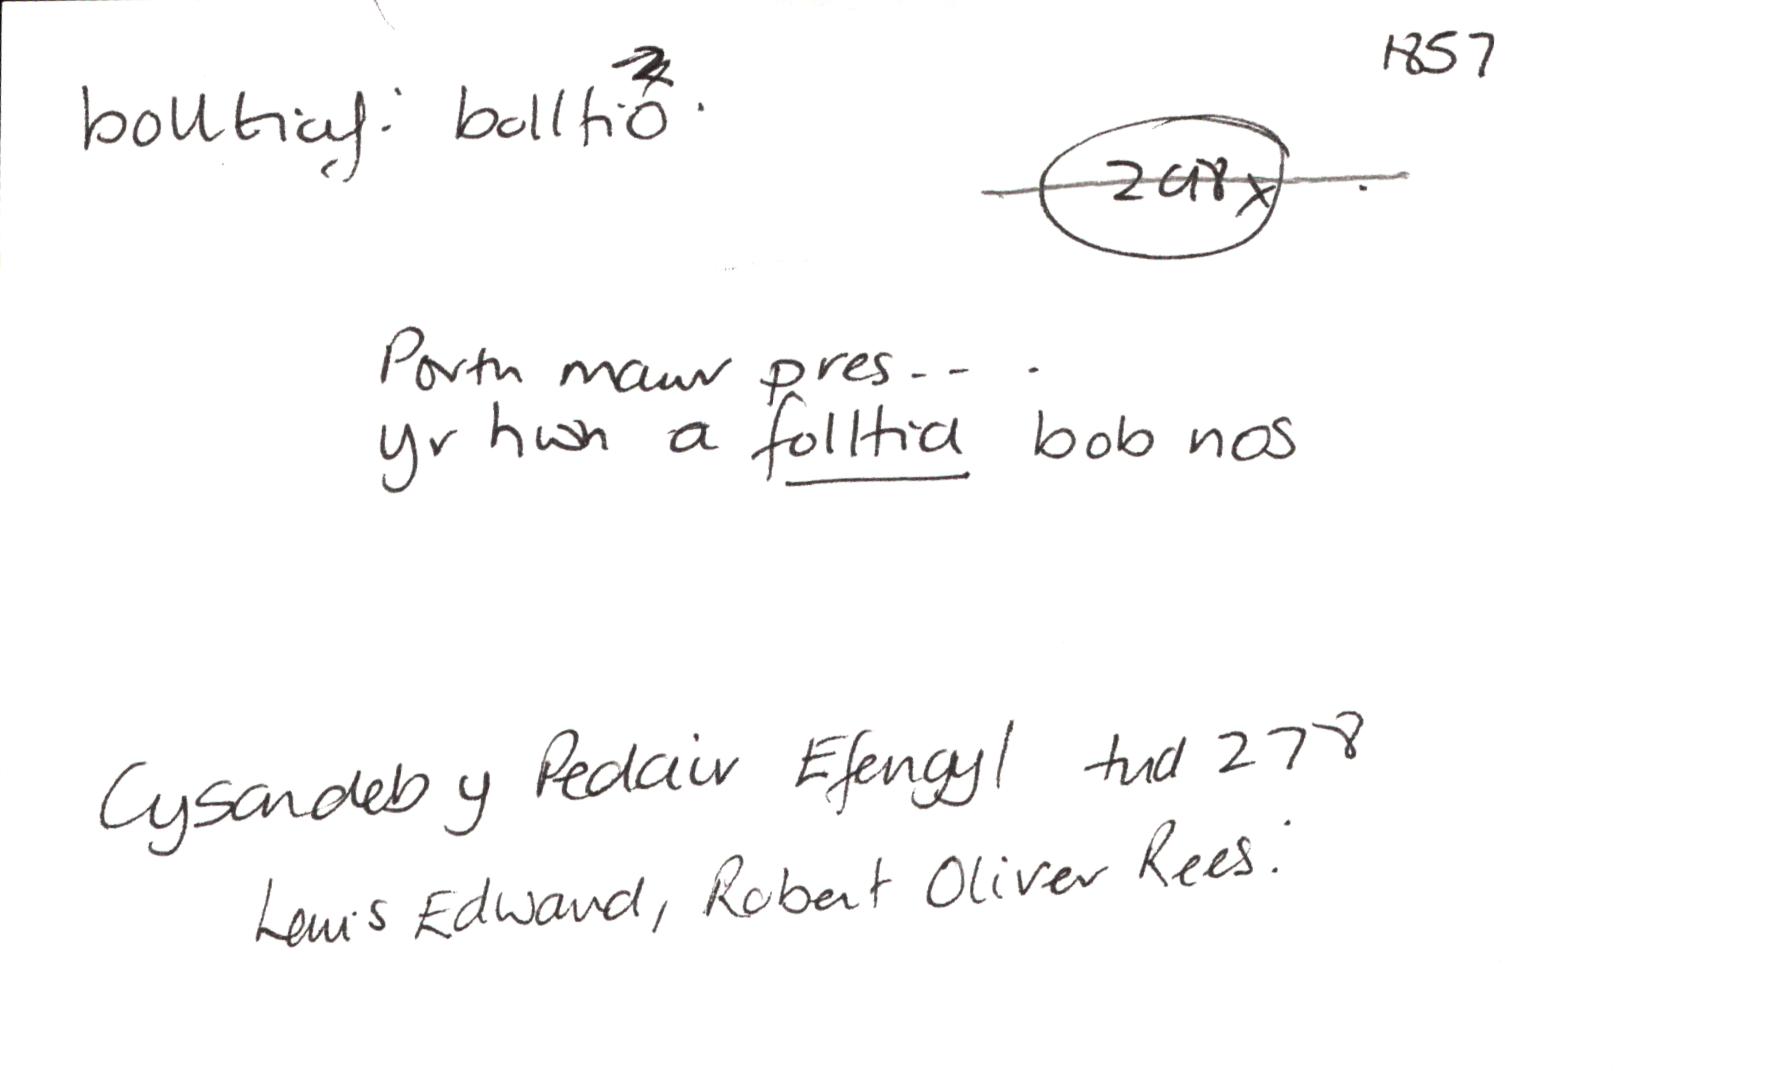 1857
bolltiaf: bolltio.
Porth mawr pres --- .
yr hwn a folltid bob nos
Cysondeb y Pedair Efengyl tud 278
Lewis Edward, Robert Oliver Rees.